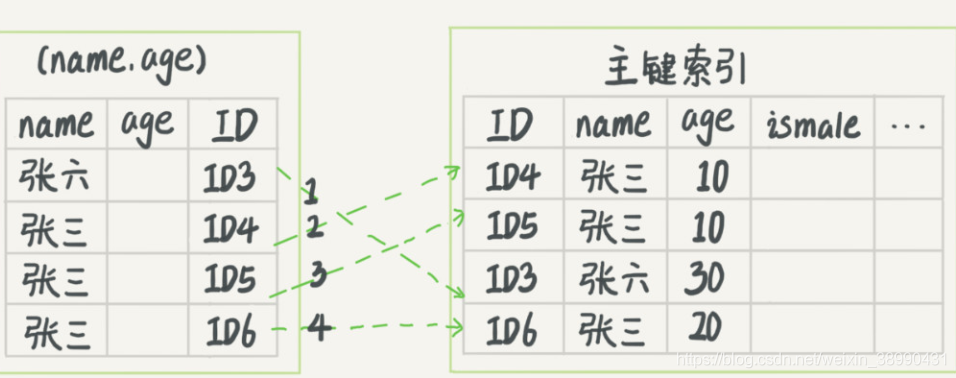 (name.age)
name age ID
张六 ID3
张三 ID4
张三 ID5
张三 ID6
1
2
3
4
主键索引
ID name age ismale ...
ID4 张三 10
ID5 张三 10
ID3 张六 30
ID6 张三 20
https://blog.csdn.net/weixin_38990431